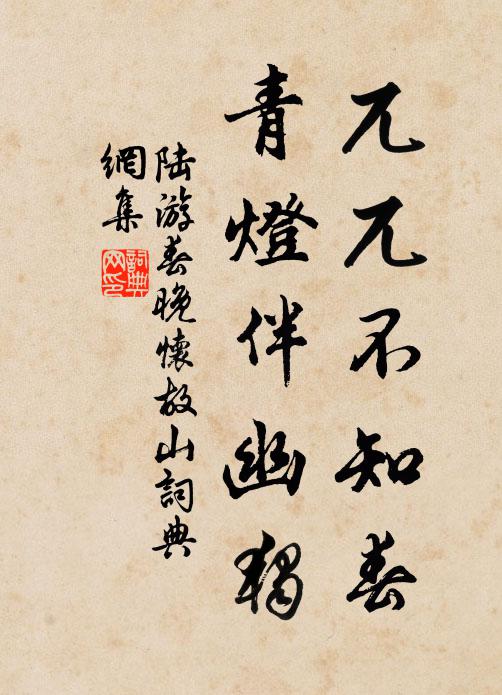 兀兀不知春
青燈伴幽獨
陆游春晚懷故山詞典
網集
詞典
网印